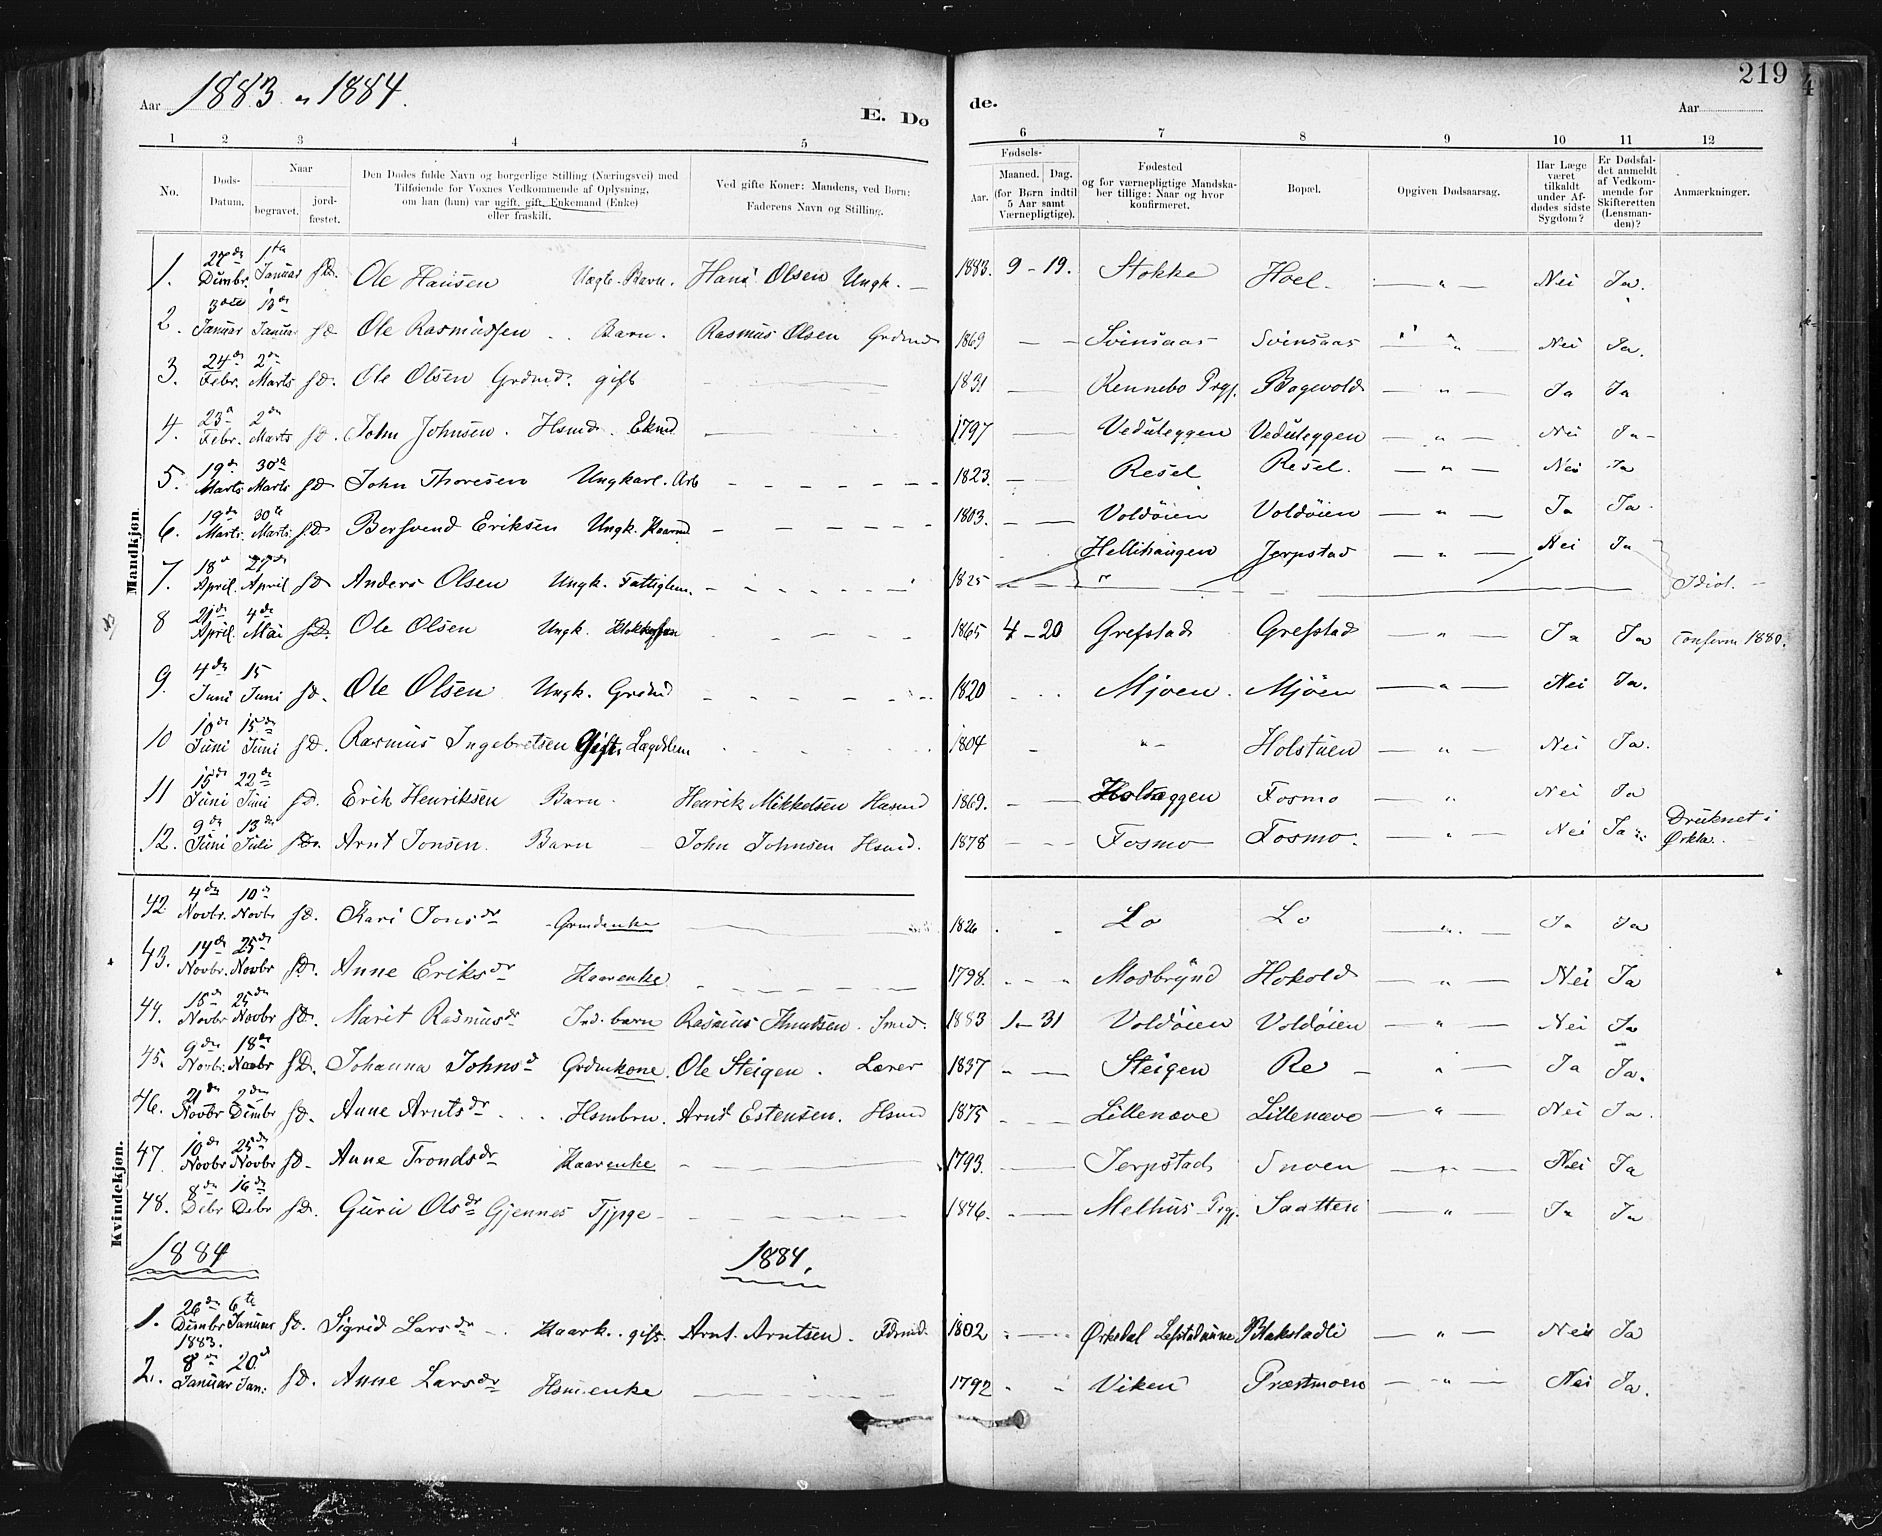 Aar 1883 & 1884.
E. Do
de.
Aar
219
1 2 3 4 5 6 7 8 9 10 11 12
No.
Døds-Datum.
Naar
begravet.
jord-fæstet.
Den Dødes fulde Navn og borgerlige Stilling (Næringsvei) med
Tilføiende for Voxnes Vedkommende af Oplysning,
om han (hun) var ugift, gift, Enkemand (Enke)
eller fraskilt.
Ved gifte Koner: Mandens, ved Børn:
Faderens Navn og Stilling.
Fødsels-
Aar.
Maaned. Dag.
(for Børn indtil
5 Aar samt
Værnepligtige).
Fødested
og for værnepligtige Mandska-
ber tillige: Naar og hvor
konfirmeret.
Bopæl.
Opgiven Dødsaarsag.
Har Læge
været
tilkaldt
under Af-
dødes sidste
Sygdom?
Er Dødsfal-
det anmeldt
af Vedkom-
mende for
Skifteretten
(Lensman-
den)?
Anmærkninger.
Mandkjøn.
1. 27de Dcmbr. 1ste Januar sD. Ole Hansen Uægte Barn. Hans Olsen Ungk. — 1883. 9 - 19. Stokke Hoel. — " — Nei Ja.
2. 3die Januar 13de Januar sD Ole Rasmussen Barn. Rasmus Olsen Grdmd 1869 — — Svinsaas Svinsaas — " — Nei Ja.
3. 24de Febr. 2den Marts sD. Ole Olsen Grdmd. gift — 1831 — Rennebo Prgj. Bagevold — " — Ja Ja
4. 23de Febr. 2den Marts sD. John Johnsen. Hsmd. Ekmd — 1797 — Veduleggen Veduleggen — " — Nei Ja -
5. 19de Marts 30te Marts sD John Thoresen Ungkarl. Arb - - - 1823. — Resel Resel. — " — Nei Ja
6. 19de Marts. 30te Marts. sD Bersvend Eriksen Ungk. Kaarmd - - - 1803. — Voldöien Voldöien — " — Ja Ja
7. 18de April. 27de April sD Anders Olsen Ungk. Fattiglem. - - - 1825 Hellihaugen Jerpstad — " — Nei Ja Idiot. —
8 21de April. 4de Mai sD. Ole Olsen Ungk. 1865 4 - 20 Grefstad Grefstad — " — Ja Ja Confirm 1880.
9. 4de Juni 15 Juni sD. Ole Olsen Ungk. Grdmd - - - 1820 Mjoen. Mjöen — " — Nei Ja.
10 10de Juni 15de Juni sD. Rasmus Ingebretsen Gift. Lægdslem 1804 " - Holstuen — " — Nei Ja.
11 15de Juni 22de Juni sD. Erik Henriksen Barn. Henrik Mikkelsen Husmd 1869. — Fosmo — " — Nei Ja
12. 9de Juni 13de Juli sD. Arnt Jonsen. Barn — John Johnsen Hsmd. 1878 - - - Fosmo Fosmo. — " — Nei Ja Druknet i Orkla.
Kvindekjøn.
42 4de Novbr. 10de Novbr sD. Kari Jonsdr Grmdenke — 1826 Lo Lo — " — Ja Ja
43. 14de Novbr. 25de Novbr sD. Anne Eriksdr Kaarenke - - - 1798. Mosbrynd Hokold — " — Nei Ja
44. 15de Novbr 25de Novbr sD. Marit Rasmusdr Ind. barn Rasmus Knudsen. Smed. 1883 1 - 31 Voldöien Voldöien — " — Nei Ja
45. 9de Novbr. 18de Novbr sD. Johanna Johnsd Grdmkone. Ole Steigen. Lærer 1837 Steigen Re — " — Ja Ja.
46. 21de Novbr 2den Dcmbr sD. Anne Arntsdr Hsmbrn. Arnt Estensen. Hsmd 1875 Lillenæve Lillenæve — " — Nei Ja.
47. 10de Novbr 25de Novbr sD. Anne Trondsdr Kaarenke - — 1793. — Jerpstad Snoen — " — Nei Ja
48. 8de Debr 16de Debr sD. Guru Olsdr Gjennes Tjpge - - - 1846. — Melhus Prgj. Saatten — " — Ja Ja
1884 1884.
1. 26de Dcmbr 1883. 6te Januar sD. Sigrid Larsdr Kaark. gift. Arnt Arntsen. 1802 Örkedal Blakstadli — " — Nei Ja
2. 8de Januar 20de Jan. sD. Anne Larsdr Hsmenke — 1792 Viken Præstmoen — " — Nei Ja.